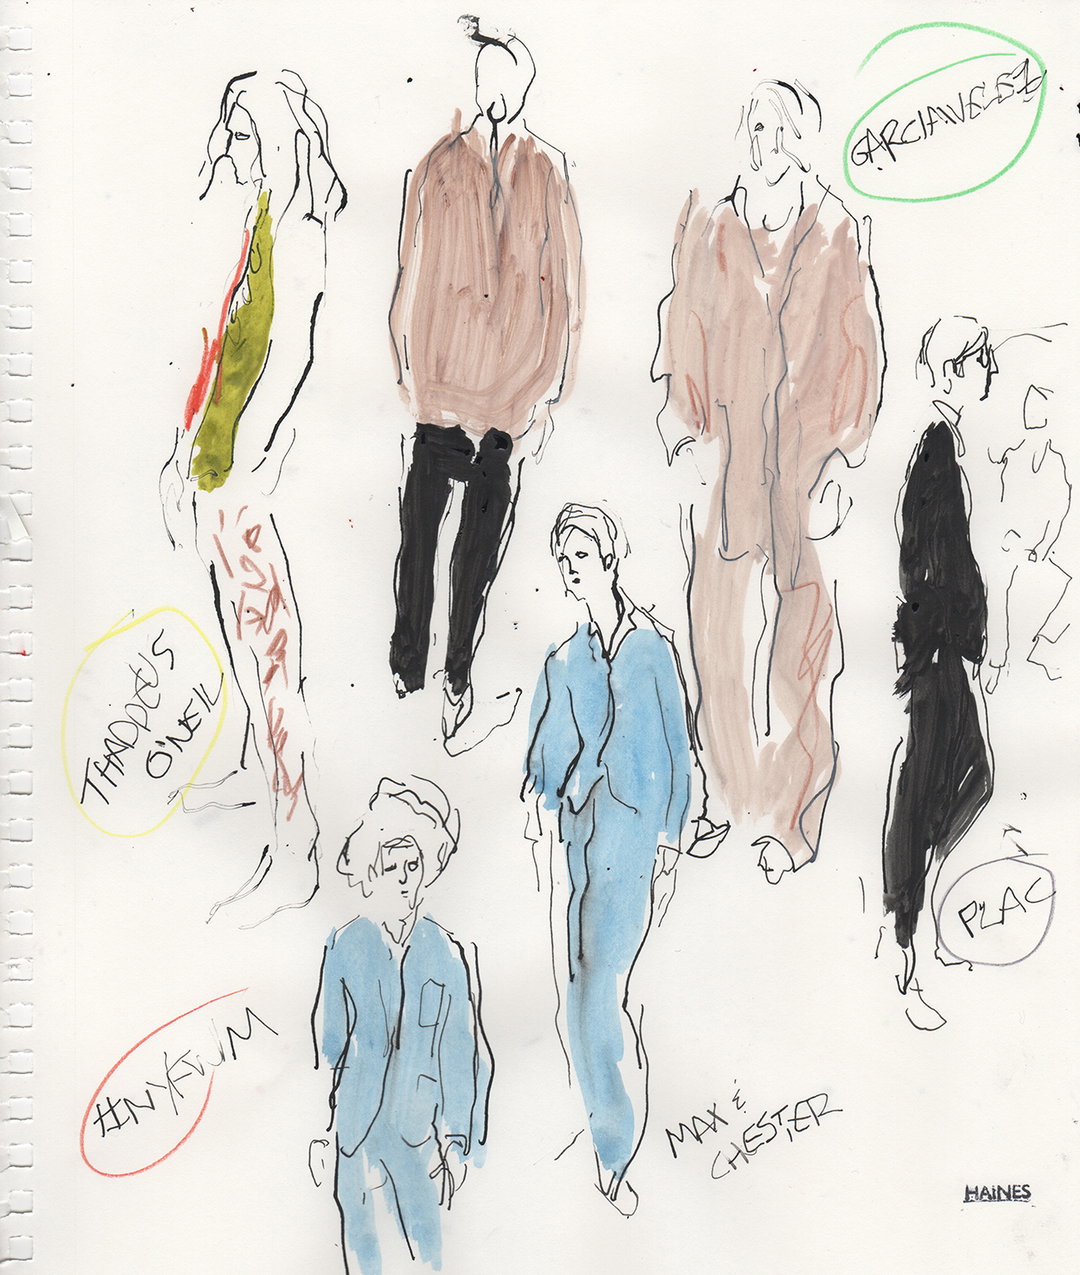 GARCIAVELEZ
THADDEUS
O'NEIL
PLAC
#NYFWM
MAX &
CHESTER
HAINES